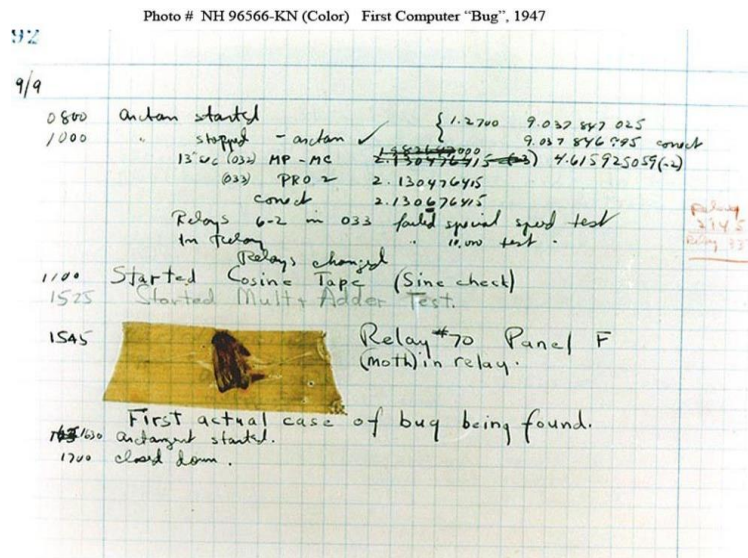 Photo # NH 96566-KN (Color) First Computer “Bug”, 1947
92
9/9
0800 Antan started { 1.2700 9.037 847 025
1000 " stopped - antan ✓ 9.037 846 995 conect
13"uc (032) MP - MC 2.130476415 4.615925059(-2)
(033) PRO 2 2.130476415
conect 2.130676415
Relays 6-2 in 033 failed special speed test
in Relay " 10.000 test.
Relay
2145
Relay 33
Relays changed
1100 Started Cosine Tape (Sine check)
1525 Started Mult + Adder Test.
1545 Relay #70 Panel F
(moth) in relay.
First actual case of bug being found.
1630 antangent started.
1700 closed down.